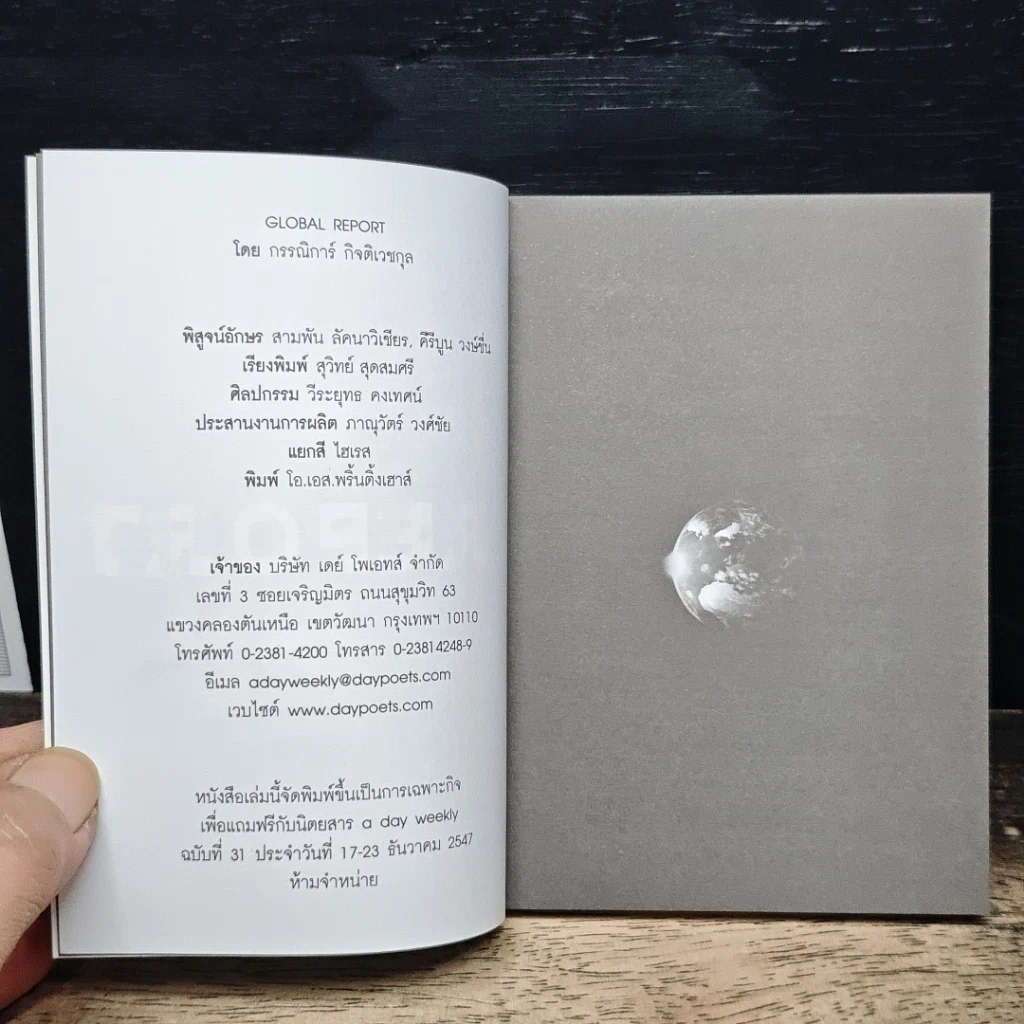 GLOBAL REPORT
โดย กรรณิการ์ กิจติเวชกุล
พิสูจน์อักษร สามพัน ลัคนาวิเชียร, คีรีบูน วงษ์ชื่น
เรียงพิมพ์ สุวิทย์ สุดสมศรี
ศิลปกรรม วีระยุทธ คงเทศน์
ประสานงานการผลิต ภาณุวัตร์ วงศ์ชัย
แยกสี ไฮเรส
พิมพ์ โอ.เอส.พริ้นติ้งเฮาส์
เจ้าของ บริษัท เดย์ โพเอทส์ จำกัด
เลขที่ 3 ซอยเจริญมิตร ถนนสุขุมวิท 63
แขวงคลองตันเหนือ เขตวัฒนา กรุงเทพฯ 10110
โทรศัพท์ 0-2381-4200 โทรสาร 0-23814248-9
อีเมล adayweekly@daypoets.com
เวบไซต์ www.daypoets.com
หนังสือเล่มนี้จัดพิมพ์ขึ้นเป็นการเฉพาะกิจ
เพื่อแถมฟรีกับนิตยสาร a day weekly
ฉบับที่ 31 ประจำวันที่ 17-23 ธันวาคม 2547
ห้ามจำหน่าย